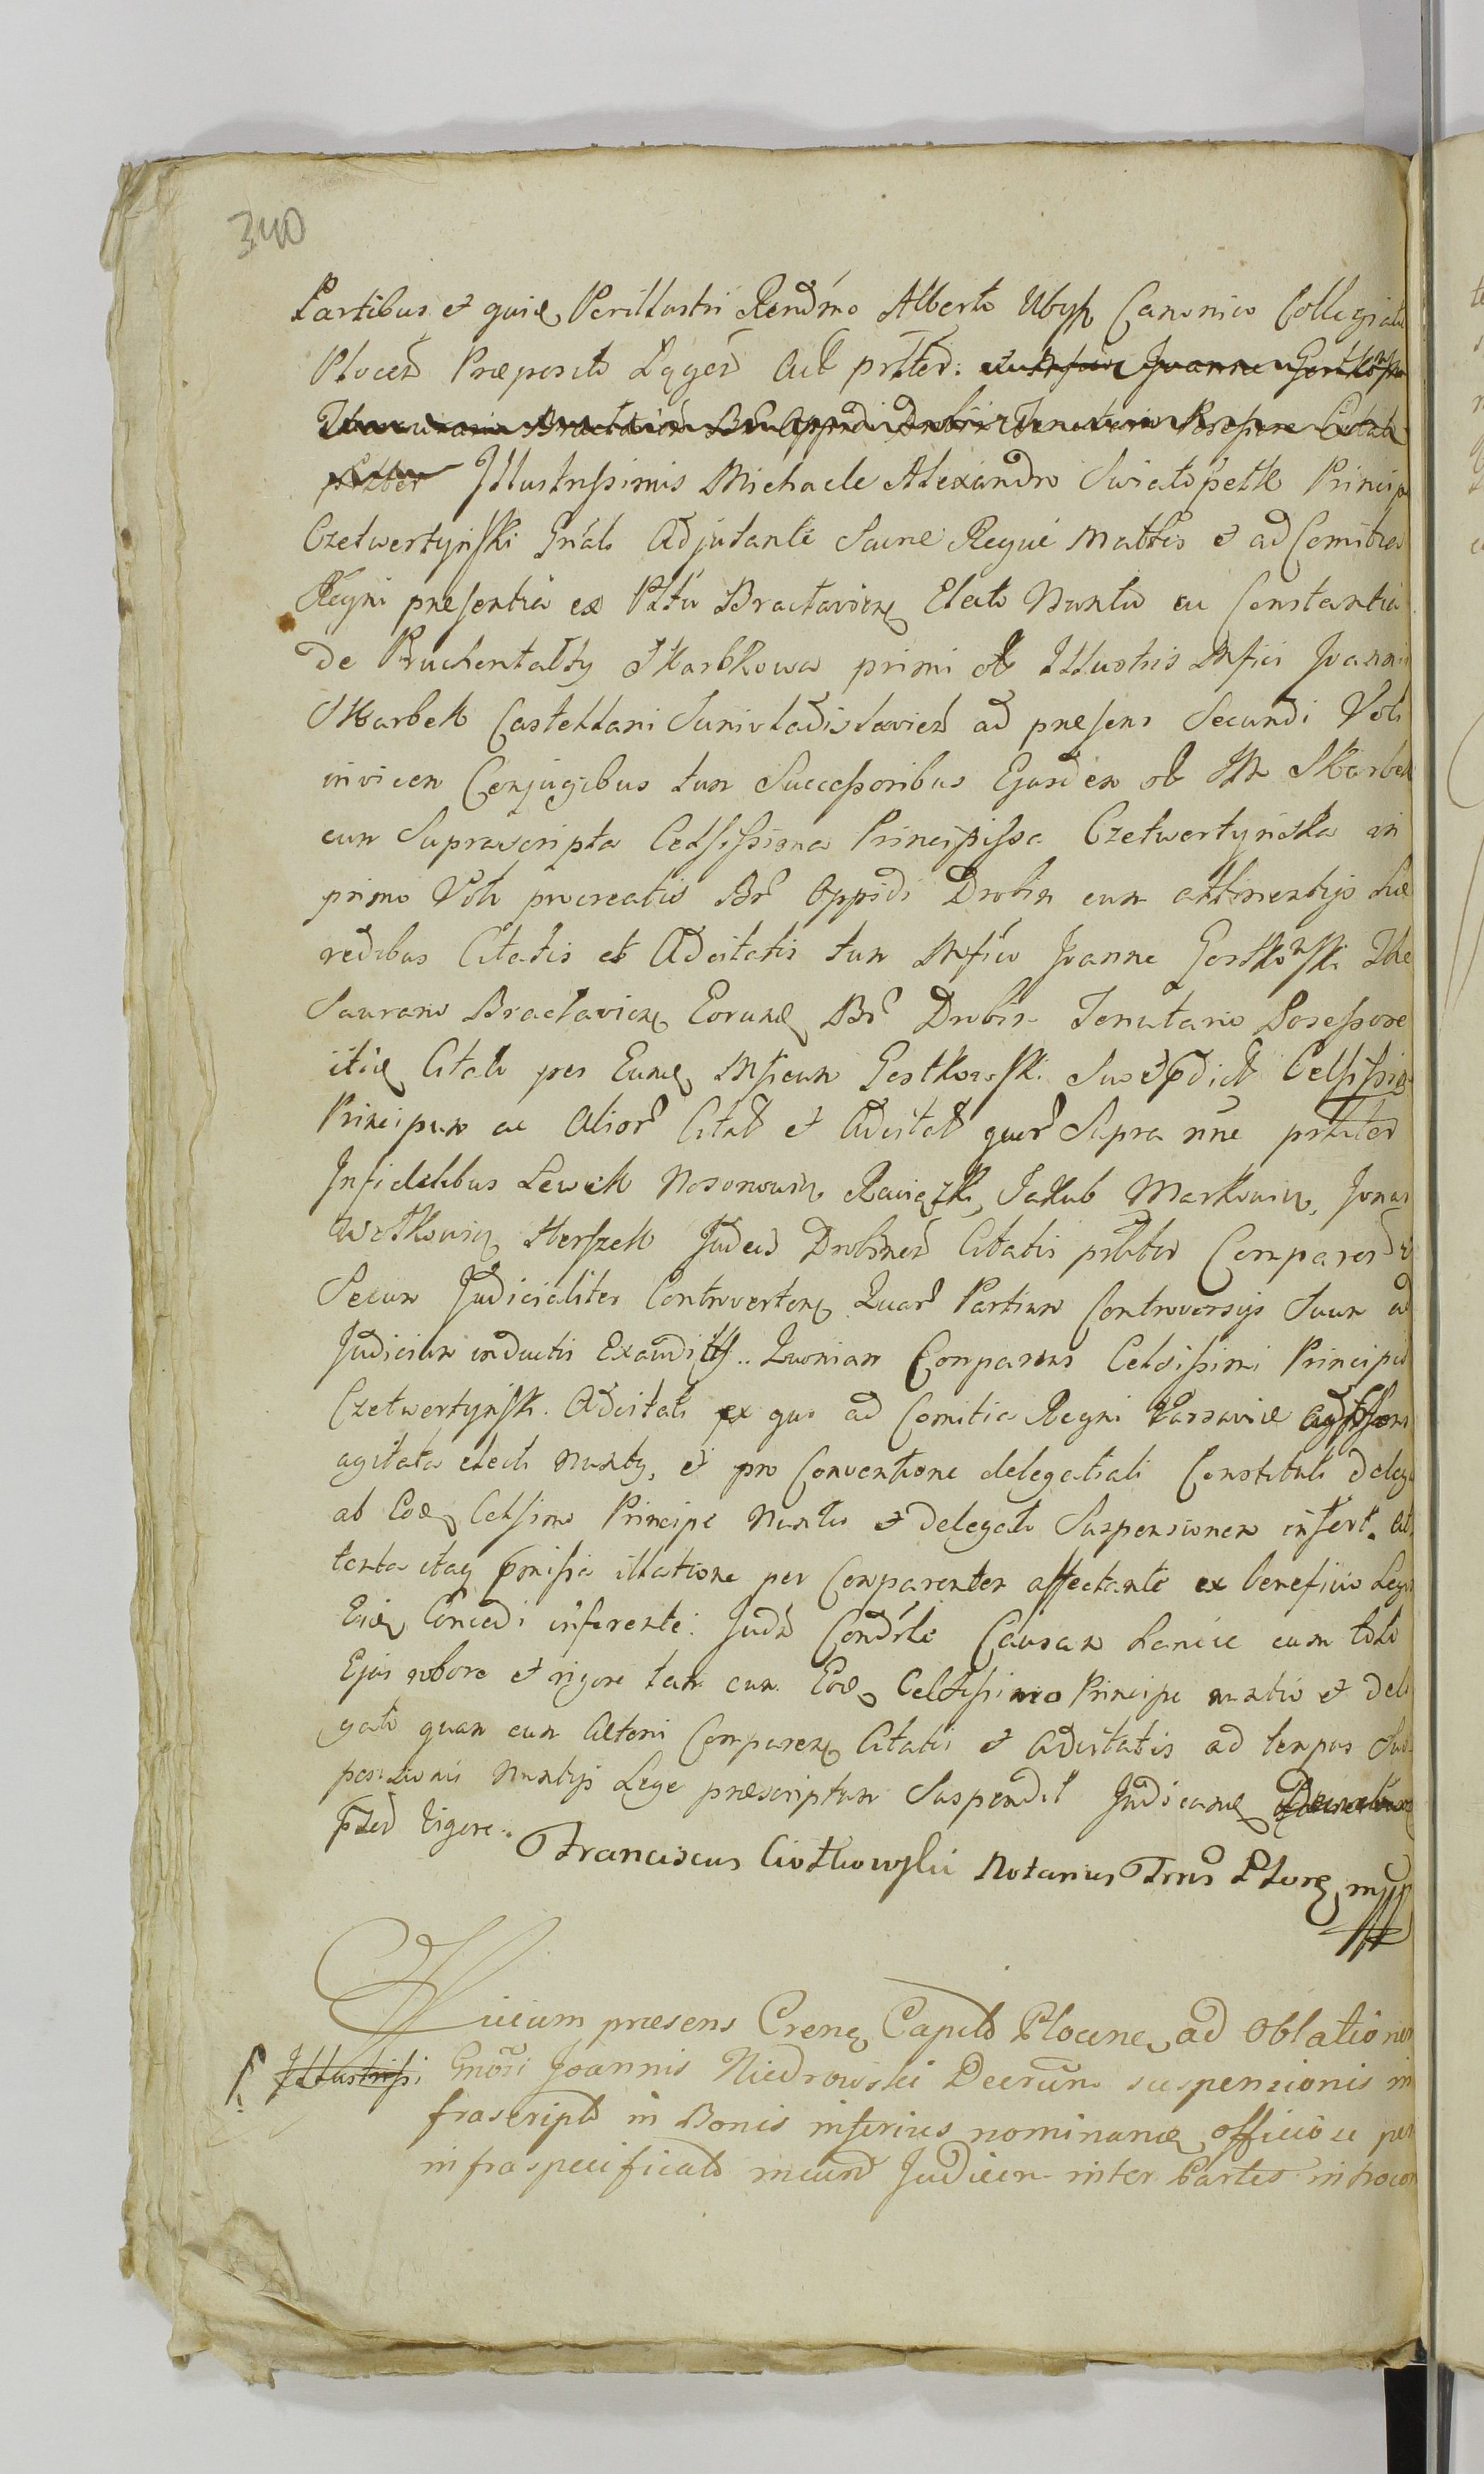 340
Partibus et quidē Perillustri Rendmo Alberto Ubysz Canonico Collegiatæ
Plocen Præposito Łęgen Act prtter: Joanne Gostkowski
Thesaurario Braclavien Br Oppidi Drobin Tenutario Possessore Citato
prttber Illustrissimis Michaele Alexandro Swiatopełk Principe
Czetwertyński Gnali Adjutante Sacræ Regiæ Mattis et ad Comitia
Regni presentia ex Pttu Braclavien Electo Nuntio ac Constantia
de Ruchental Skarbkowa primi olr Illustris Mfici Joannis
Skarbek Castellani Junivladislavien ad præsens Secundi Voti
invicem Conjugibus tum Successoribus Ejusdem olr Ill Skarbek
cum Suprascripta Celsissima Principissa Czetwertyńska in
primo Voto procreatis Br Oppidi Drobin cum attinentijs hæ
redibus Citatis et Adcitatis tum Mfico Joanne Gostkowski The
Saurario Braclavien Eorundē Br Drobin Tenutario Possessore
itidē Citato per Eundē Mficum Gostkowski Celsissim
Principum ac Alior Citat et Adcitat quor Supra nne prttter
Infidelibus Lewek Nosonowicz Raciązki, Jakub Markowicz, Jonas
Wolkowicz Herszek Judeis Drobinen Citatis prttter Comparen et
Secum Judicialiter Controverten Quar Partium Controversijs Suum ad
Judicium inductis Exauditis.. Quoniam Comparens Celsissimi Principis
Czetwertyńsk. Adcitati ex quo ad Comitia Regni Varsaviæ
agitata electi Nuntij, et pro Conventione delegatiali Constituti deleg
ab Eodē Celsimo Principe Nuntio et delegato Suspensionem infert. At
tenta itaq præmissa illatione per Comparentem affectante ex beneficio Legis
Eidē Concedi inferente: Judm Condrle Causam hancce cum toto
Ejus robore et rigore tam cum Eodē Celsissimo Principe nuntio et dele
gato quam cum Alteris Comparen Citatis et Adcitatis ad tempus Sus
pensionis Nuntijs Lege præscriptum Suspendit Judicandē
pnted vigore..
Franciscus Ciółkowski Notarius Trris Plocē mpp
Officium præsens Crenē Capitle Plocenē ad Oblationem
Illustrissi Gnosi Joannis Niedrowski Decretum suspensionis in
frascript in Bonis inferius nominandē officiose per
infraspecificato Judicem inter Partes introcon